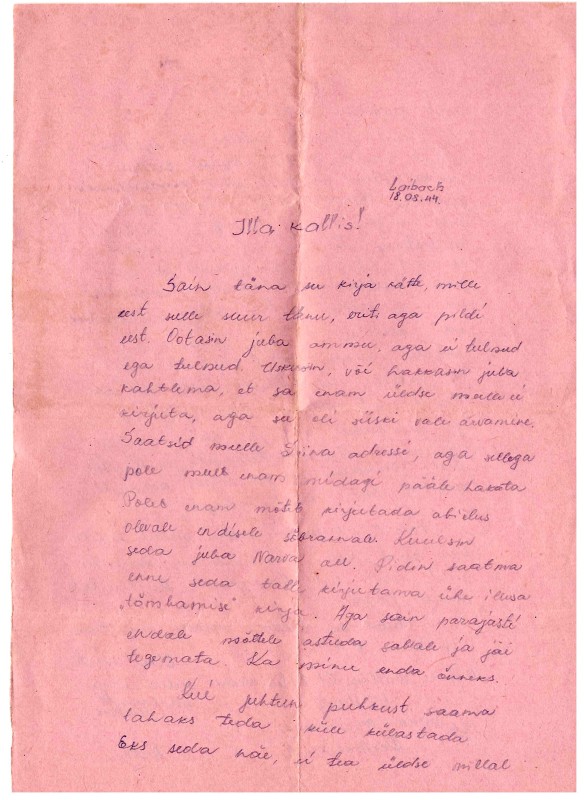 Laibach
18.08.44.
Mai kallis!
Sain täna su kirja kätte, mille
eest sulle suur tänu, eriti aga pildi
eest. Ootasin juba ammu, aga ei tulnud
ega tulnud. Uskusin, või hakkasin juba
kahtlema, et sa enam üldse mulle ei
kirjuta, aga see oli siiski vale arvamine.
Saatsid mulle aadressi, aga sellega
pole mul enam midagi pääle hakata
Poleks enam mõtet kirjutada abielus
olevale endisele sõbrannale. Kuulsin
seda juba Narva all. Pidin saatma
enne seda talle kirjutama ühe ilusa
"tõmbamise" kirja. Aga sain parajasti
endale mõttele astuda sabale ja jäi
tegemata. Ka minu enda õnneks.
Kui juhtun puhkust saama
tahaks teda küll külastada
Eks seda näe, ei tea üldse millal